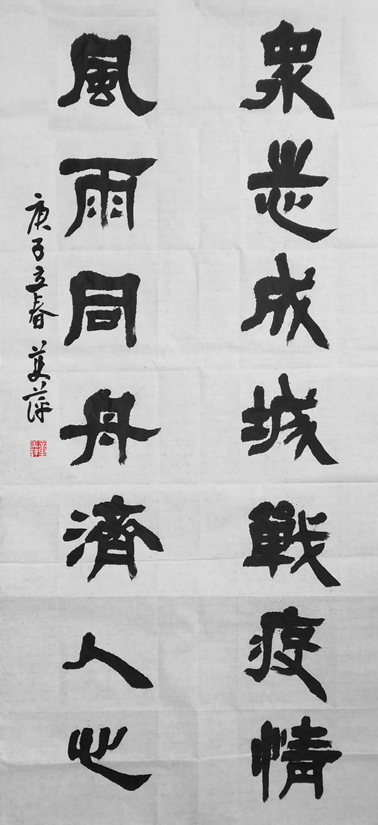 眾志成城戰疫情
風雨同舟濟人心
庚子立春